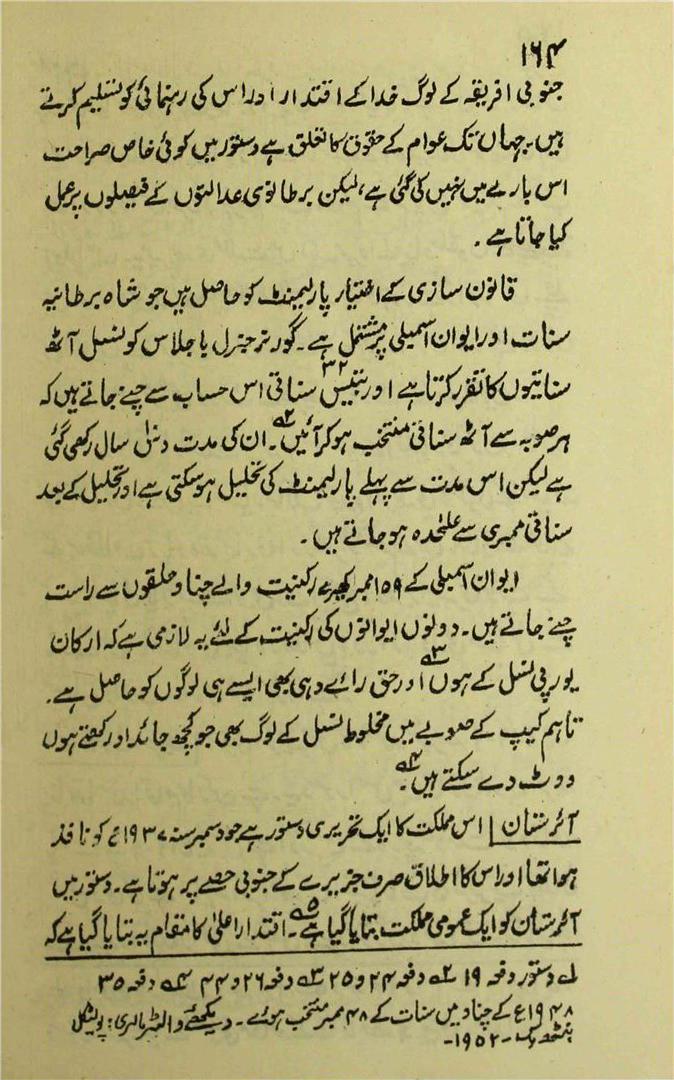 ۱۶۴
جنوبی افریقہ کے لوگ خدا کے اقتدار اور اس کی رہنمائی کو تسلیم کرتے
ہیں۔ جہاں تک عوام کے حقوق کا تعلق ہے دستور میں کوئی خاص صراحت
اس بارے میں نہیں کی گئی ہے، لیکن برطانوی عدالتوں کے فیصلوں پر عمل
کیا جاتا ہے۔
قانون سازی کے اختیار پارلیمنٹ کو حاصل ہیں جو شاہ برطانیہ
سنات اور ایوان اسمبلی پر مشتمل ہے۔ گورنر جنرل با جلاس کونسل آٹھ
سناتیوں کا تقرر کرتا ہے اور بتیس ۳۲ سناتی اس حساب سے چنے جاتے ہیں کہ
ہر صوبہ سے آٹھ سناتی منتخب ہو کر آئیں۲؎۔ ان کی مدت دس سال رکھی گئی
ہے لیکن اس مدت سے پہلے پارلیمنٹ کی تحلیل ہوسکتی ہے اور تحلیل کے بعد
سناتی ممبری سے علٰحدہ ہو جاتے ہیں۔
ایوان اسمبلی کے ۱۵۹ ممبر اکہرے رکنیت والے چناو حلقوں سے راست
چنے جاتے ہیں۔ دونوں ایوانوں کی رکنیت کے لئے یہ لازمی ہے کہ ارکان
یورپی نسل کے ہوں۳؎ اور حق رائے دہی بھی ایسے ہی لوگوں کو حاصل ہے۔
تاہم کیپ کے صوبے میں مخلوط نسل کے لوگ بھی جو کچھ جائداد رکھتے ہوں
ووٹ دے سکتے ہیں۴؎۔
آئرستان | اس مملکت کا ایک تحریری دستور ہے جو دسمبر سنہ ۱۹۳۷ع کو نافذ
ہوا تھا اور اس کا اطلاق صرف جزیرے کے جنوبی حصے پر ہوتا ہے۔ دستور میں
آئرستان کو ایک عمومی مملکت بتایا گیا ہے۵؎۔ اقتدار اعلیٰ کا مقام یہ بتایا گیا ہے کہ
۱؎ دستور دفعہ ۱۹ ۲؎ دفعہ ۲۴ و ۲۵ ۳؎ دفعہ ۲۶ و ۴۴ ۴؎ دفعہ ۳۵
۱۹۴۸ع کے چناو میں سنات کے ۴۸ ممبر منتخب ہوئے۔ دیکھئے والٹر مالری: پولیٹکل
ہینڈ بک۔ ۱۹۵۲۔